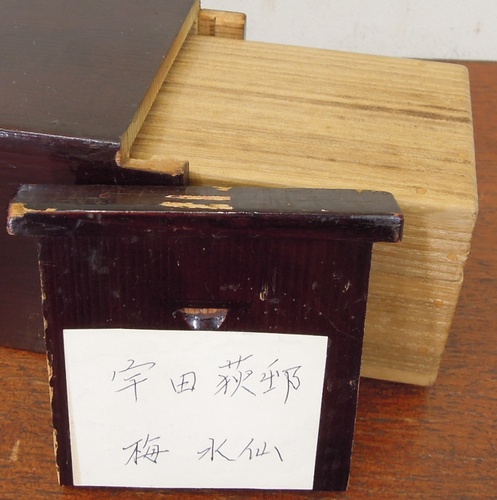 宇田荻邨
梅 水仙